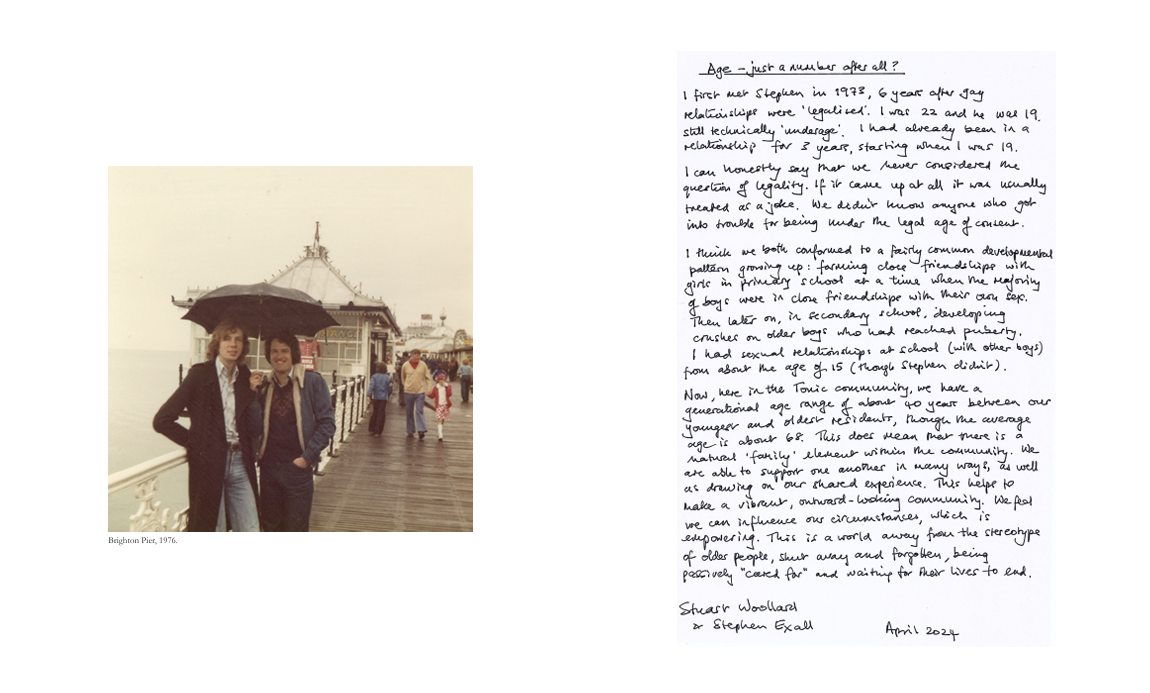 Brighton Pier, 1976.
Age – just a number after all?
I first met Stephen in 1973, 6 years after gay
relationships were 'legalised'. I was 22 and he was 19,
still technically 'underage'. I had already been in a
relationship for 3 years, starting when I was 19.
I can honestly say that we never considered the
question of legality. If it came up at all it was usually
treated as a joke. We didn't know anyone who got
into trouble for being under the legal age of consent.
I think we both conformed to a fairly common developmental
pattern growing up: forming close friendships with
girls in primary school at a time when the majority
of boys were in close friendships with their own sex.
Then later on, in secondary school, developing
crushes on older boys who had reached puberty.
I had sexual relationships at school (with other boys)
from about the age of 15 (though Stephen didn't).
Now, here in the Tonic community, we have a
generational age range of about 40 years between our
youngest and oldest residents, though the average
age is about 68. This does mean that there is a
natural 'family' element within the community. We
are able to support one another in many ways, as well
as drawing on our shared experience. This helps to
make a vibrant, outward-looking community. We feel
we can influence our circumstances, which is
empowering. This is a world away from the stereotype
of older people, shut away and forgotten, being
passively "cared for" and waiting for their lives to end.
Stuart Woollard
& Stephen Exall
April 2024